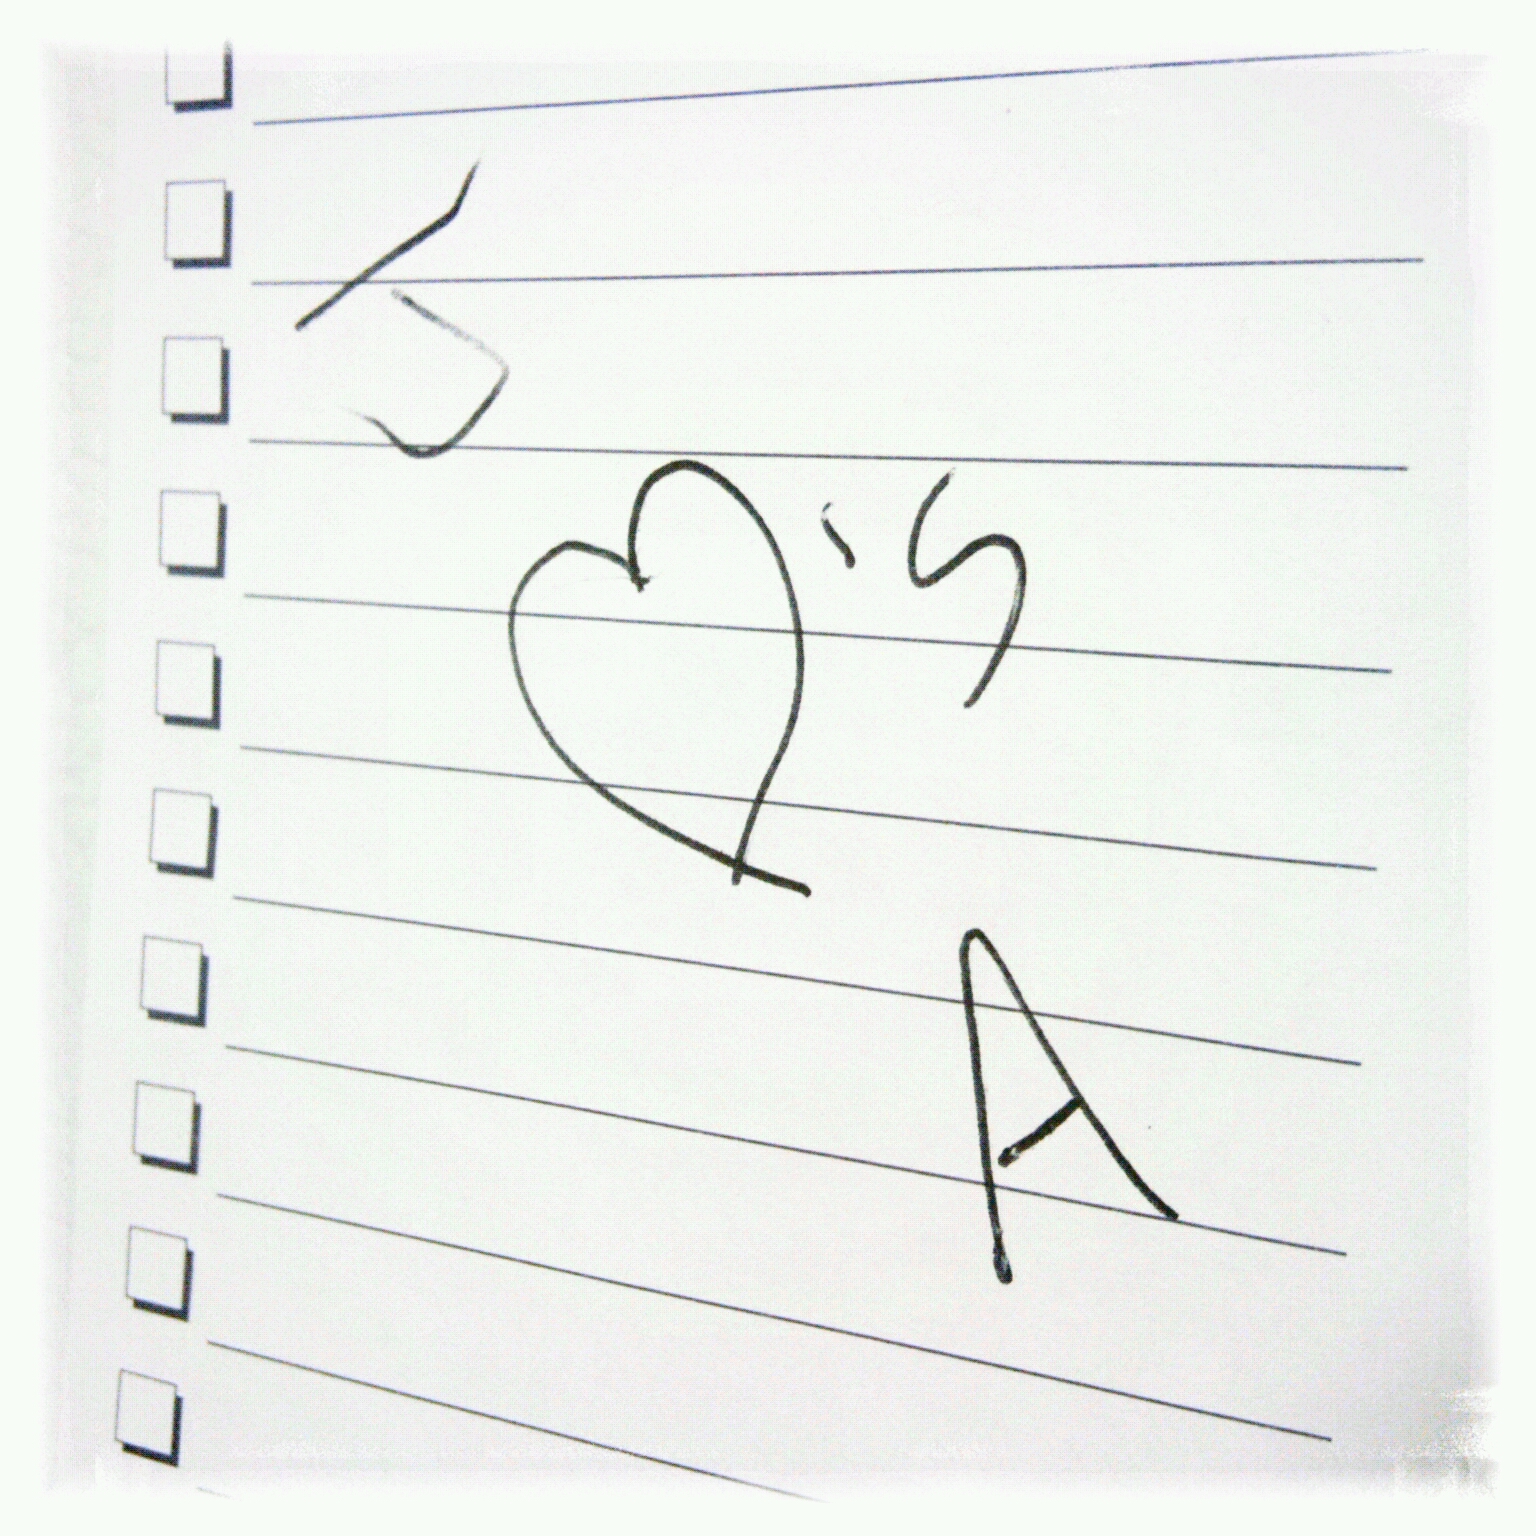 J
♡'s
A